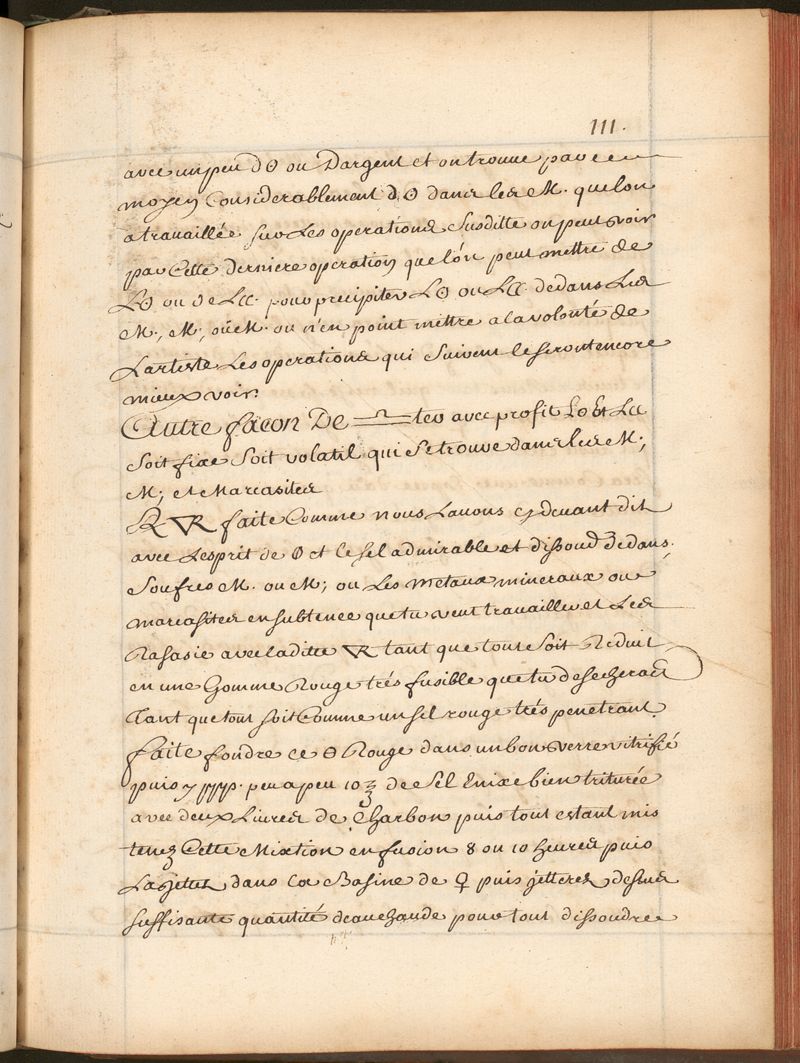 111.
avec un peu d☉ ou Dargent et on trouve par ce
moyen Considerablement d☉ dans les M. quelon
a travaillée sur Les operations Susditte on peut voir
par Cette derniere operation que lón peut mettre de
L☉ ou de L☾. pour precipiter L☉ ou L☾ dedans Les
M., M;, ou M. ou n'en point mettre a la volonté de
Lartiste Les operations qui Suivent le feront encore
mieux voir.
Autre façon De ♎ ter avec profit L☉ Et L☾
Soit fixe Soit volatil qui Se trouve dans les M;,
M; et Marcasites
℞ faite Comme nous Lavons cy devant dit
avec Lesprit de et le Sel admirable et dissoud dedans.
Soufres M. ou M; ou Les metaux mineraux ou
marcasites en subtence que tu veut travailler et Les
Rasasie avec laditte tant que tout Soit Reduit
en une Gomme Rouge trés fusible que tu desecheras
Tant que tout soit Comme un sel rouge trés penetrant.
faite foudre ce Rouge dans un bon verre vitrifié
puis y peu a peu 10 ℥ de Sel Enixe bien triturée
avec deux Livres de Charbon puis tout estant mis
tenez Cette Mixtion en fusion 8 ou 10 heures puis
La jettez dans La Basine de ♀ puis jetterez dessus
suffisante quantité deau chaude pour tout dissoudre